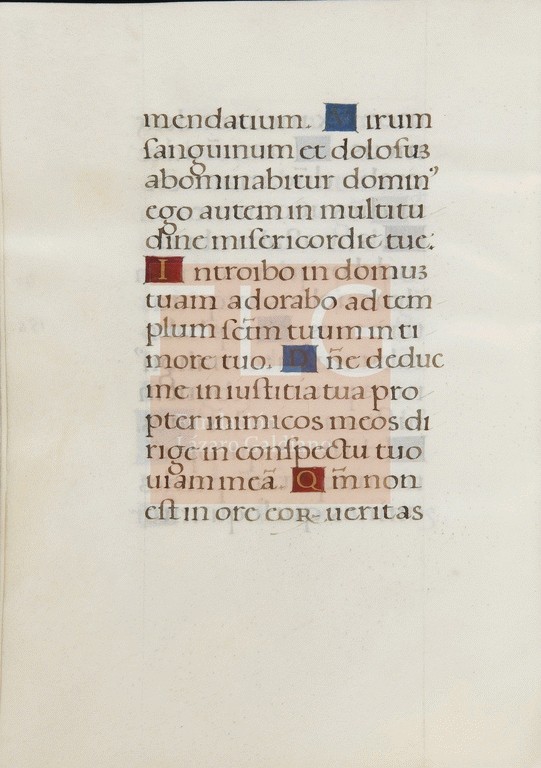 mendatium. Virum
ſanguinum et doloſuꝫ
abominabitur dominꝰ
ego autem in multitu
dine miſericordie tue:
Introibo in domuꝫ
tuam adorabo ad tem
plum ſctm̄ tuum in ti
more tuo. Dn̄e deduc
me in iuſtitia tua pro
pter inimicos meos di
rige in conſpectu tuo
uiam meā. Qm̄ non
eſt in ore eoꝝ ueritas
FLG
Lázaro Galdiano